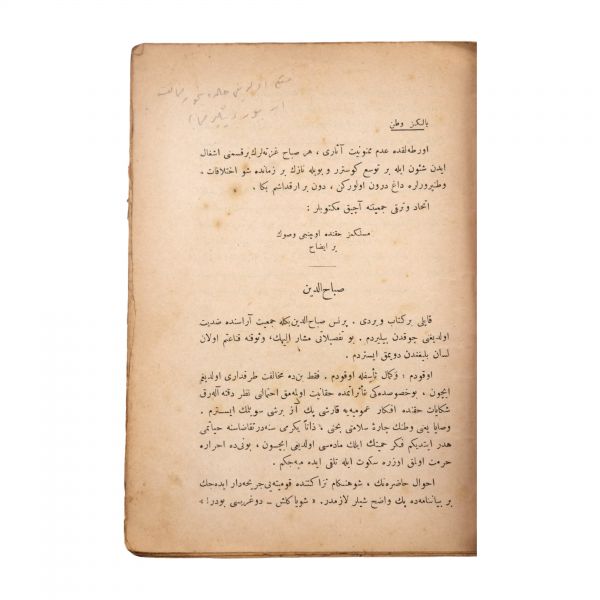 یالكز وطن
اورطه‌لقده عدم ممنونیت آثاری ، هر صباح غزته‌لرك برقسمنی اشغال
ایدن شئون ایله بر توسع كوسترر و بویله نازك بر زمانده شو اختلافات ،
وطنپرورلره داغ درون اولوركن ، دون بر ارقداشم بكا .
اتحاد وترقی جمعیتنه آچیق مكتوبلر :
مسلكمز حقنده اوچنجی وصوك
بر ایضاح
صباح‌الدین
قابلی بركتاب ویردی . پرنس صباح‌الدین‌بكله جمعیت آراسنده ضدیت
اولدیغی چوقدن بیلیردم . بو تفصیلاتی مشار الیهك، وثوقنه قناعتم اولان
لسان بلیغندن دویمق ایستردم .
اوقودم ؛ وكمال تأسفله اوقودم . فقط بن‌ده مخالفت طرفداری اولدیغم
ایچون ، بوخصوصده‌كی تأثراتمده حقانیت اولمه‌مق احتمالنی نظر دقته آله‌رق
شكایات حقنده افكار عمومیه‌یه قارشی پك آز برشی سویلمك ایسترم .
وصایا یعنی وطنك چارهٔ سلامتی بحثی ، ذاتاً یكرمی سنه‌در تقاضاسنه حیاتمی
هدر ایتدیكم فكر حمیتك ایلك ماده‌سی اولدیغی ایچون ، بونی‌ده احراره
حرمت اولمق اوزره سكوت ایله تلقی ایده میه‌جكم .
احوال حاضره‌نك ، شوهنكام نزاكتنده قومیته‌یی جریحه‌دار ایده‌جك
بر بیاننامه‌ده پك واضح شیلر لازمدر . « شویاكلش ــ دوغریسی بودر ! »